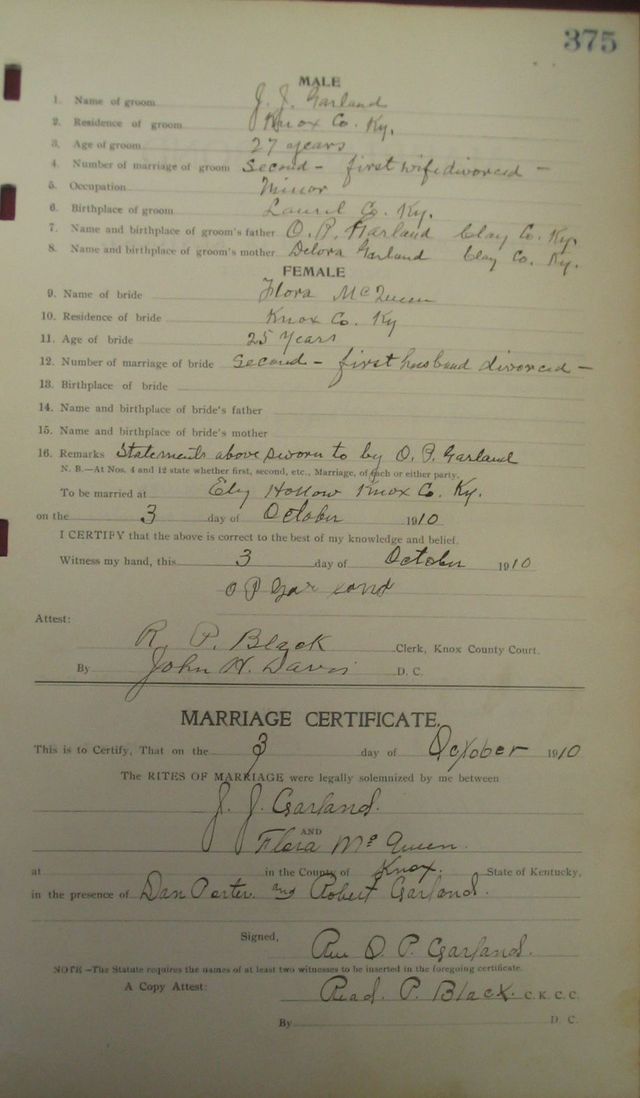 375
MALE
1. Name of groom J. J. Garland
2. Residence of groom Knox Co. Ky.
3. Age of groom 27 years
4. Number of marriage of groom Second - first wife divorced -
5. Occupation Minor
6. Birthplace of groom Laurel Co. Ky.
7. Name and birthplace of groom's father O. P. Garland Clay Co. Ky.
8. Name and birthplace of groom's mother Delora Garland Clay Co. Ky.
FEMALE
9. Name of bride Flora McQueen
10. Residence of bride Knox Co. Ky
11. Age of bride 25 Years
12. Number of marriage of bride Second - first husband divorced -
13. Birthplace of bride
14. Name and birthplace of bride's father
15. Name and birthplace of bride's mother
16. Remarks Statements above sworn to by O. P. Garland
N. B.—At Nos. 4 and 12 state whether first, second, etc., Marriage, of each or either party.
To be married at Ely Hollow Knox Co. Ky.
on the 3 day of October 1910
I CERTIFY that the above is correct to the best of my knowledge and belief.
Witness my hand, this 3 day of October 1910
O P Garland
Attest:
R. P. Black Clerk, Knox County Court.
By John W. Davis D. C.
MARRIAGE CERTIFICATE.
This is to Certify, That on the 3 day of October 1910
The RITES OF MARRIAGE were legally solemnized by me between
J. J. Garland.
AND
Flora McQueen.
at in the County of Knox. State of Kentucky,
in the presence of Dan Porter and Robert Garland.
Signed,
Rev O. P. Garland.
NOTE—The Statute requires the names of at least two witnesses to be inserted in the foregoing certificate.
A Copy Attest: Read. P. Black. C. K. C. C.
By D. C.